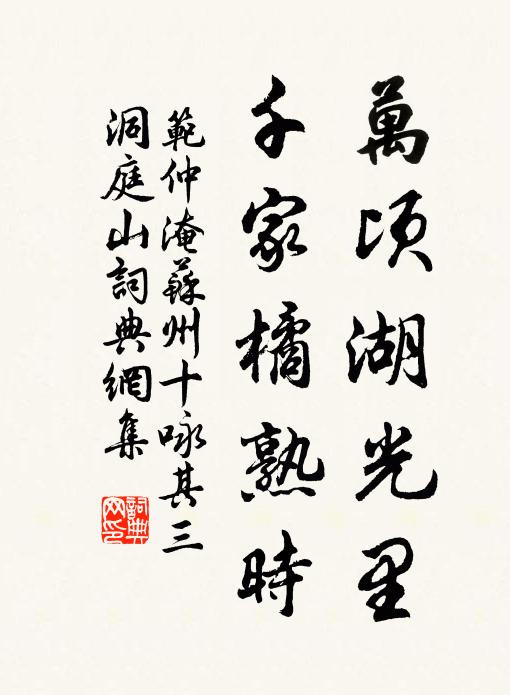 萬頃湖光里
千家橘熟時
範仲淹蘇州十咏其三
洞庭山詞典網集
詞典網印